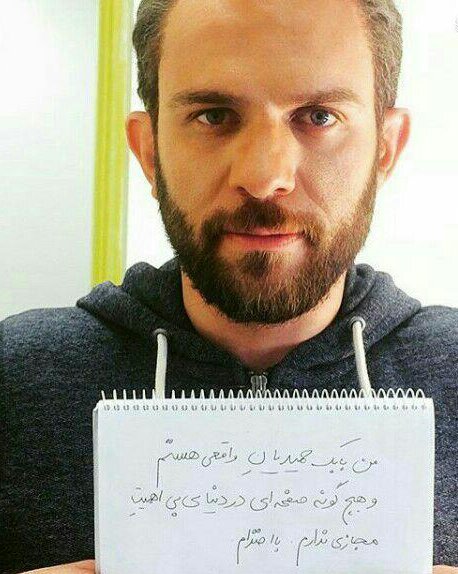 من بابک حمیدیانِ واقعی هستم
و هیچ گونه صفحه ای در دنیای بی اهمیتِ
مجازی ندارم. با احترام